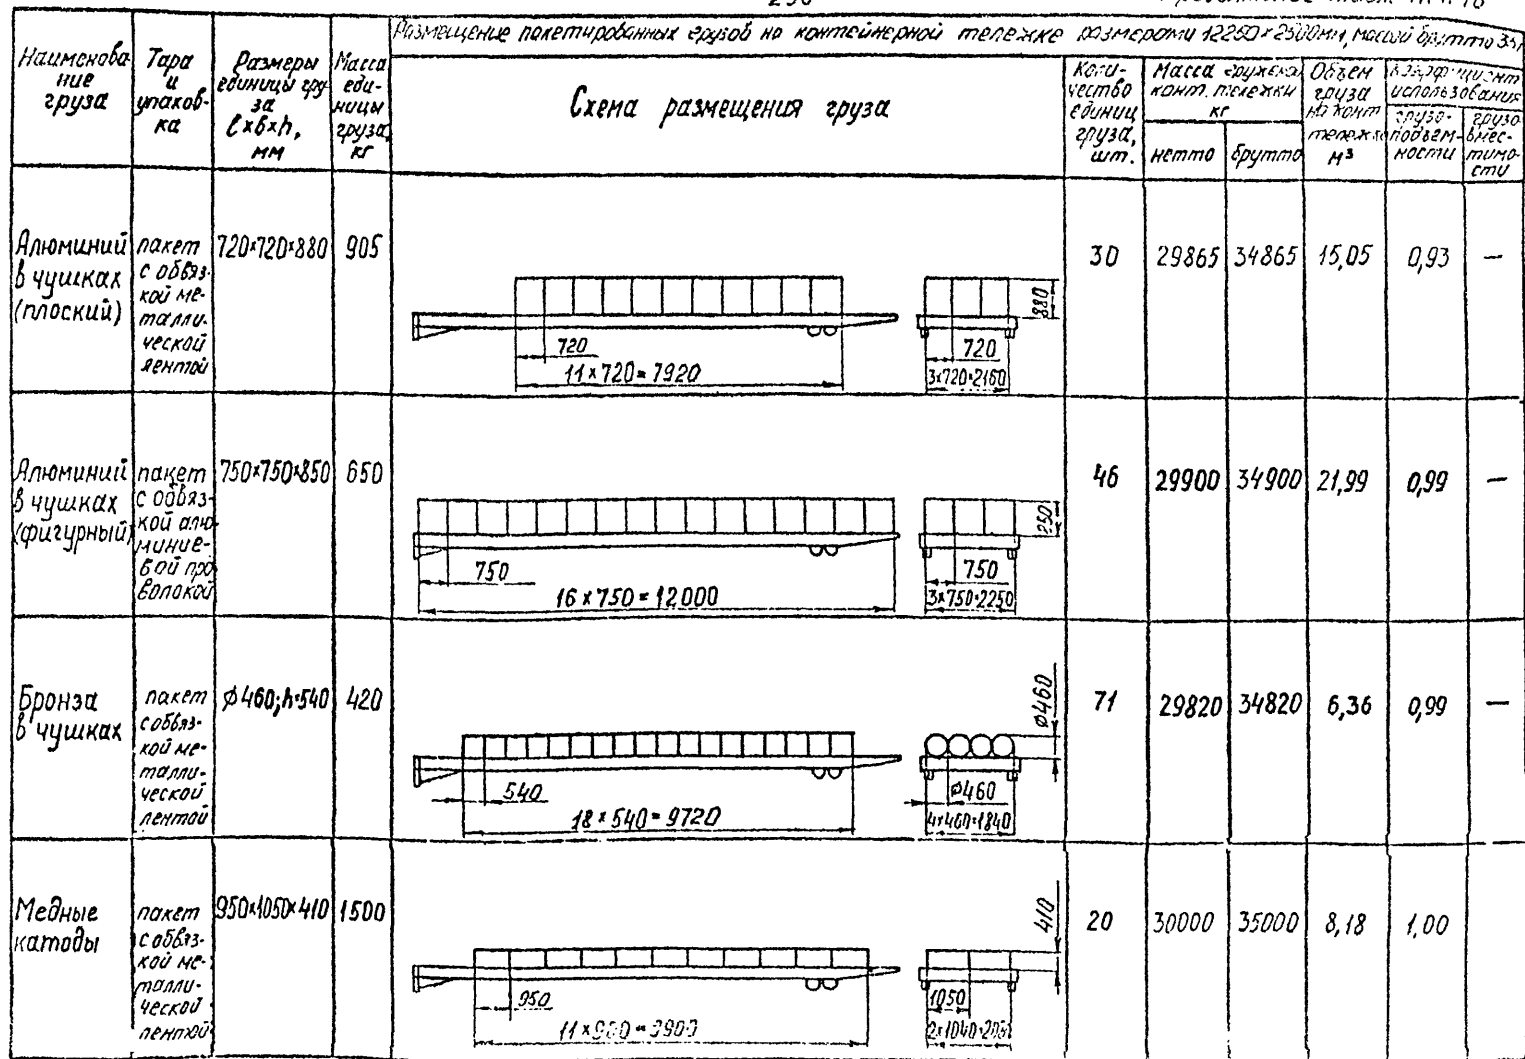 Размещение пакетированных грузов на контейнерной тележке размерами 12250×2500мм, массой брутто
Наименова
ние
груза
Тара
и
упаков-
ка
Размеры
единицы гру
за
ℓ×b×h,
мм
Масса
еди-
ницы
груза,
кг
Схема размещения груза
Коли-
чество
единиц
груза,
шт.
Масса груженой
конт. тележки
кг
нетто
брутто
Объем
груза
на конт
тележке
м³
Коэффициент
использования
грузо-
подъем-
ности
грузо
вмес-
тимо-
сти
Алюминий
в чушках
(плоский)
пакет
с обвяз-
кой ме-
талли-
ческой
лентой
720×720×880
905
720
11×720=7920
880
720
3×720=2160
30
29865
34865
15,05
0,93
—
Алюминий
в чушках
(фигурный)
пакет
с обвяз-
кой алю
миние-
вой про
волокой
750×750×850
650
750
16×750=12000
750
3×750=2250
46
29900
34900
21,99
0,99
—
Бронза
в чушках
пакет
с обвяз-
кой ме-
талли-
ческой
лентой
ø460; h=540
420
540
18×540=9720
ø460
ø460
4×460=1840
71
29820
34820
6,36
0,99
—
Медные
катоды
пакет
с обвяз-
кой ме-
талли-
ческой
лентой
950×1050×410
1500
950
410
1050
20
30000
35000
8,18
1,00